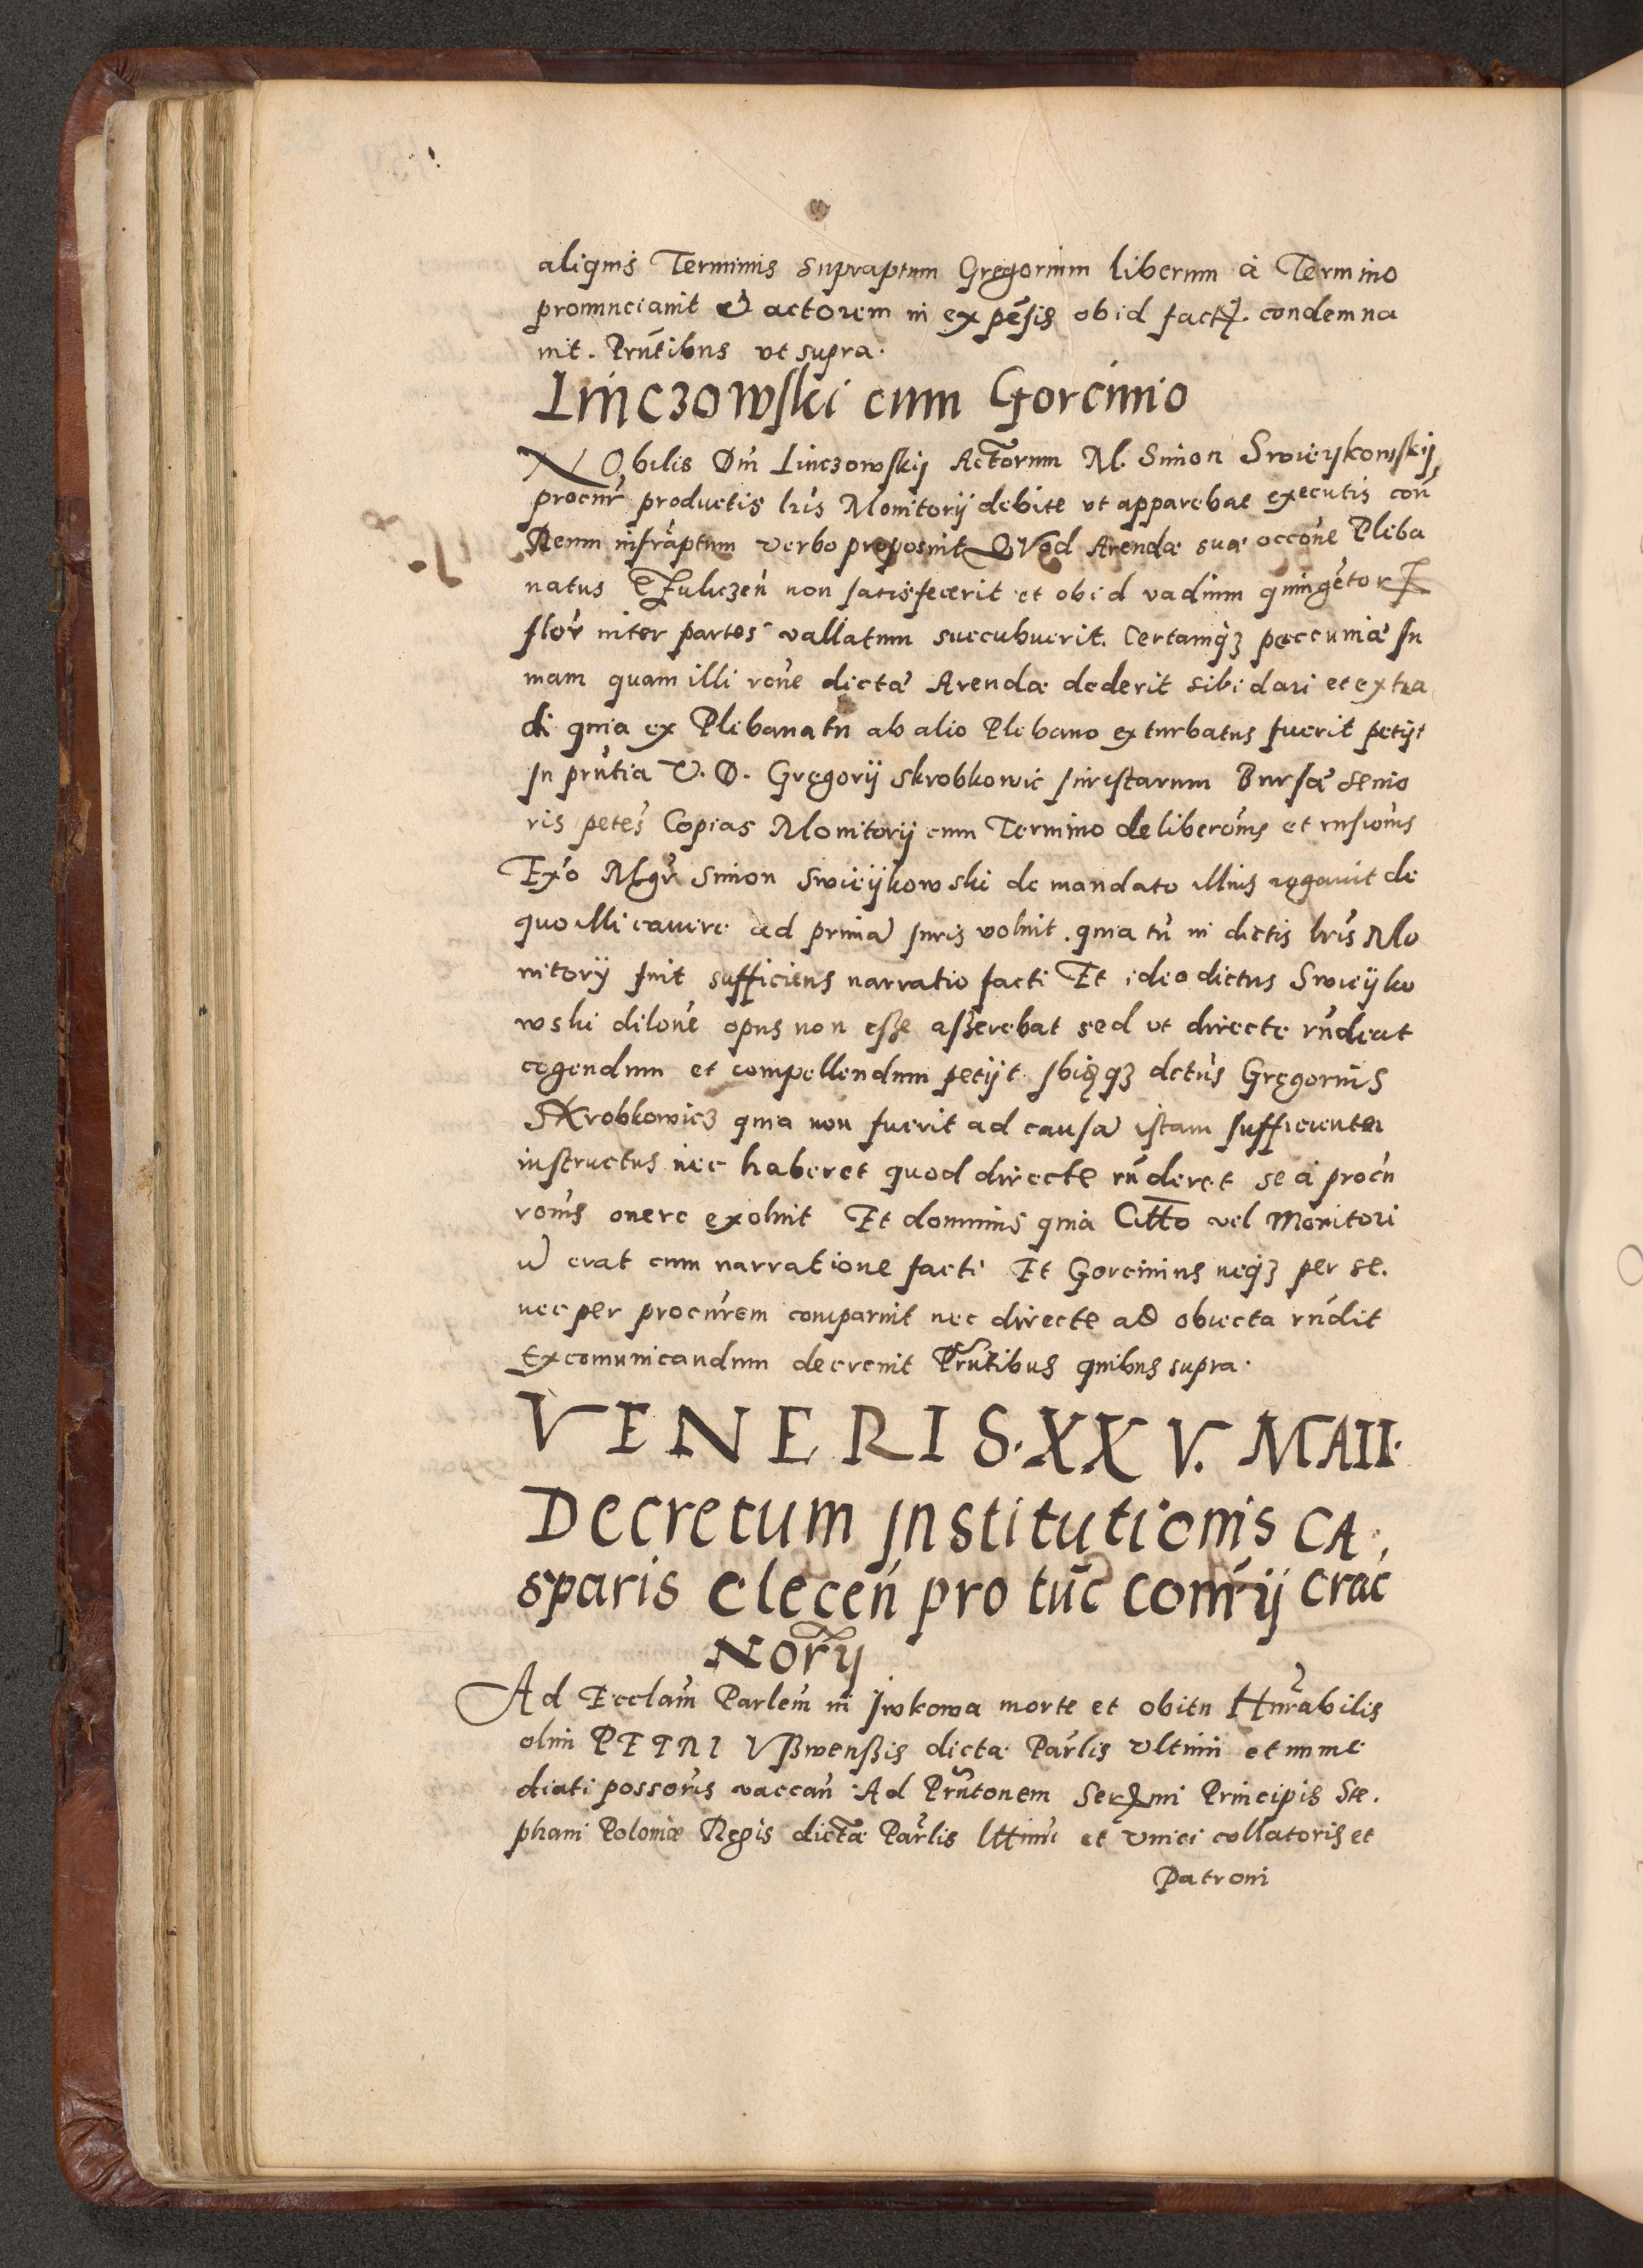 aliquis Terminis supraptum Gregorium liberum à Termino
pronunciauit et actorem in expēsis ob id fact. condemna
uit. Prntibus vt supra.
Linczowski cum Gorcinio
NObilis Dm Linczowskij Actorum M. Simon Swieykowskij
procur productis lris Monitorij debite vt apparebat executis con
Reum infraptum verbo proposuit QVod Arendæ suæ occone Pleba
natus non satisfecerit et ob id vadium quingetor
flor inter partes vallatum succubuerit. Certamq3 pecuniæ su
mam quam illi rone dictæ Arendæ dederit sibi dari et extra
di quia ex Plebanatu ab alio Plebano exturbatus fuerit petijt
In prntia V. D. Gregorij Skrobkowic Iuristarum Bursæ senio
ris petes Copias Monitorij cum Termino deliberonis et rnsionis
Exo Mgr Simon Swieijkowski de mandato illius rogauit de
quo illi cauere ad prima Iuris voluit. quia tn in dictis lris Mo
nitorij fuit sufficiens narratio facti Et ideo dictus Swieijko
wski dilone opus non esse asserebat sed vt directe rndeat
cogendum et compellendum petijt. Ibiq3 dctus Gregorius
SKrobkowicz quia non fuerit ad causa istam sufficienter
instructus nec haberet quod directe rnderet se à procu
ronis onere exoluit Et dominus quia Citto vel Monitori
u erat cum narratione facti Et Gorcinius neq3 per se.
nec per procurem comparuit nec directe ad obiecta rndit
Excomunicandum decreuit Prntibus quibus supra.
VENERIS. XXV. MAII.
Decretum Institutionis CA.
sparis Clecen pro tuc Comrij Crac
Norij
Ad Ecclam Parlem in Iwkowa morte et obitu Hnrabilis
olim PETRI Vsswenssis dictæ Parlis Vltimi et imme
diati possoris vaccan Ad Prntonem Sermi Principis Ste.
phani Poloniæ Regis dictæ Parlis lttimi et vnici collatoris et
Patroni